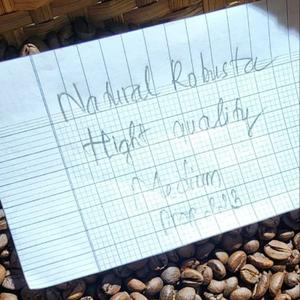 Natural Robusta
Hight quality
Medium